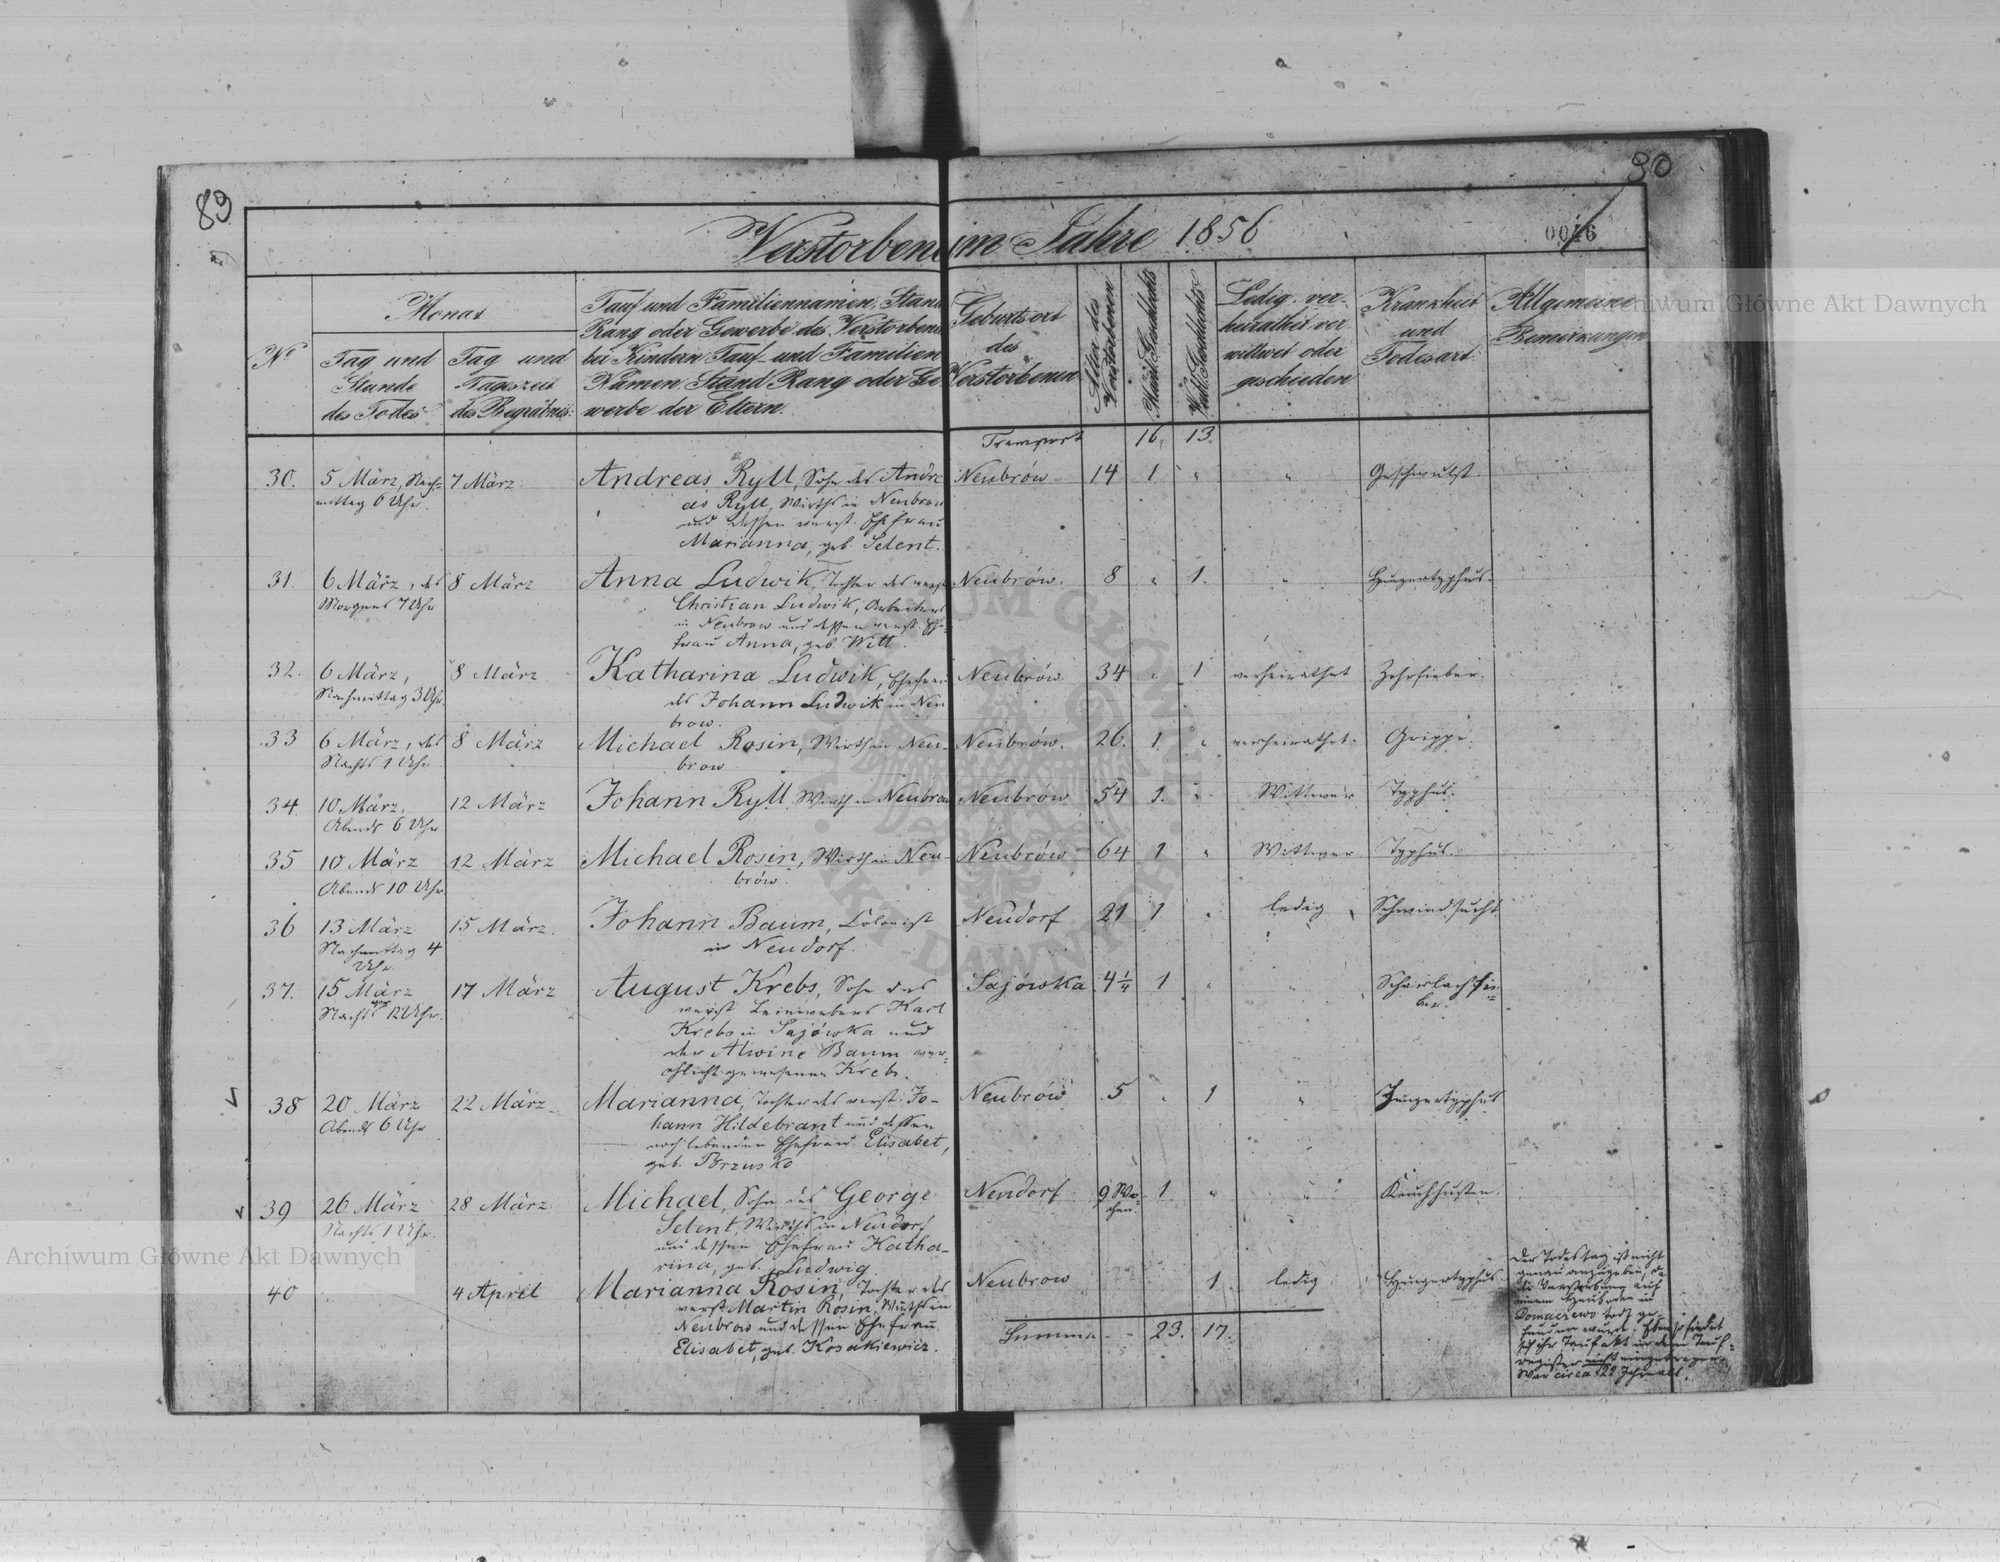 89
90
Verstorbene im Jahre 1856
0046
No
Monat
Tag und
Stunde
des Todes
Tag und
Tageszeit
des Begräbniß:
Tauf und Familiennamen, Stand
Rang oder Gewerbe des Verstorbene
bei Kindern Tauf- und Familien
Namen Stand Rang oder Ge
werbe der Eltern.
Geburtsort
des
Verstorbenen
Alter des
Verstorbenen
Männl. Geschlechts
Weibl. Geschlechts
Ledig. ver-
heirathet ver
wittwet oder
geschieden
Krankheit
und
Todesart:
Allgemeine
Bemerkungen
Transport 16. 13.
30. 5 März, Nach- 7 März. Andreas Ryll, Sohn des Andre Neubrów 14 1 " " Geschwulst.
mittag 6 Uhr.
as Ryll, Wirths in Neubrow
und dessen verst. Ehefrau
Marianna, geb. Selent.
31. 6 März, des 8 März Anna Ludwik, Tochter des verst. Neubrów. 8 " 1. " Hungertyphus.
Morgens 7 Uhr
Christian Ludwik, Arbeiters
in Neubrow und dessen verst. Ehe-
frau Anna, geb. Witt.
32. 6 März, 8 März Katharina Ludwik, Ehefrau Neubrów. 34 " 1 verheirathet Zehrfieber.
Nachmittag 3 Uhr.
des Johann Ludwik in Neu
brow.
33 6 März, des 8 März Michael Rosin, Wirth in Neu- Neubrów. 26. 1. " verheirathet. Grippe.
Nachts 1 Uhr
brow
34. 10 März, 12 März Johann Ryll Wirth in Neubrow Neubrów 54 1. " Wittwer Typhus.
Abends 6 Uhr
35 10 März 12 März Michael Rosin, Wirth in Neu- Neubrów 64 1 " Wittwer Typhus.
Abends 10 Uhr
brów.
36 13 März 15 März. Johann Baum, Colonist Neudorf 21 1 " ledig Schwindsucht
Nachmittag 4
Uhr.
in Neudorf.
37. 15 März 17 März August Krebs, Sohn des Sajówka 4 1/4 1 " " Scharlachfie-
Nachts 12 Uhr.
ber.
verst Leinwebers Karl
Krebs in Sajówka und
der Alwine Baum ver-
ehlicht gewesenen Krebs.
38 20 März 22 März Marianna, Tochter des verst. Jo- Neubrów 5 " 1 " Hungertyphus
Abends 6 Uhr
hann Hildebrant und dessen
noch lebenden Ehefrau Elisabet,
geb. Brzusko
39 26 März 28 März Michael, Sohn des George Neudorf 9 Wo- 1 " " Keuchhusten.
chen
Nachts 1 Uhr.
Selent, Wirths in Neudorf
und dessen Ehefrau Katha-
rina, geb. Ludwig.
40 4 April Marianna Rosin, Tochter des Neubrow 1 ledig Hungertyphus
verst Martin Rosin, Wirths in
Neubrow und dessen Ehefrau
Elisabet, geb. Kosakiewicz.
Der Todestag ist nicht
genau anzugeben, da
die Verstorbene auf
einem Heuboden in
Domaczewo todt ge-
funden wurde. Ebenso findet
sich ihr Taufakt in dem Tauf-
register nicht eingetragen.
War circa 22 Jahre alt.
Summa 23. 17.
Archiwum Główne Akt Dawnych
Archiwum Główne Akt Dawnych
ARCHIWUM GŁÓWNE AKT DAWNYCH